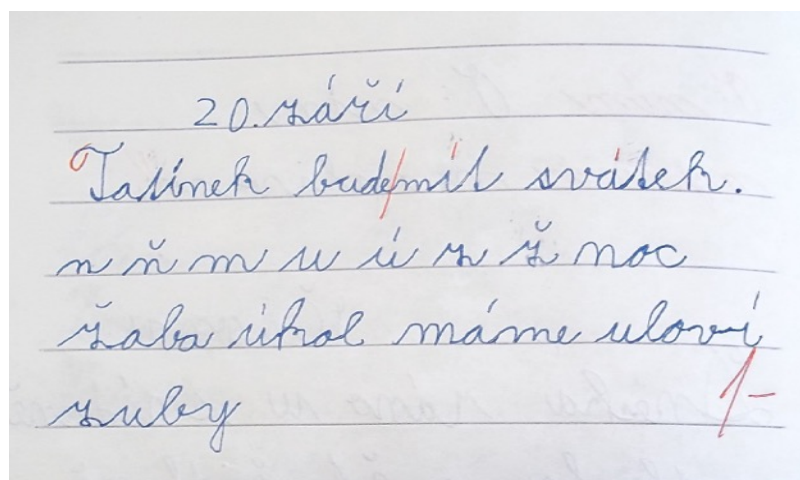 20. září
Tatínek bude mít svátek.
n ň m u ú z ž noc
žaba úkol máme uloví
zuby
1-